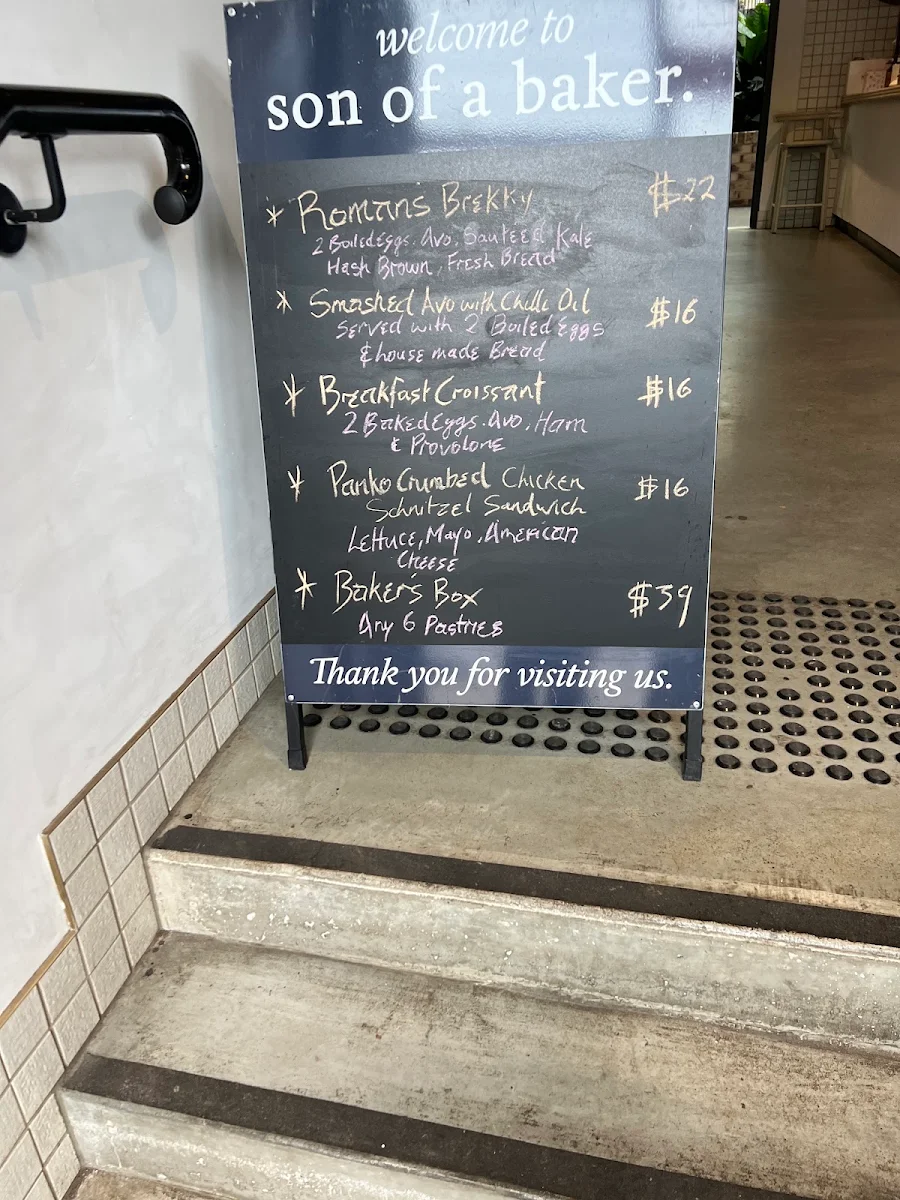 welcome to
son of a baker.
* Romans Brekky $22
2 Boiled Eggs. Avo. Sauteed Kale
Hash Brown, Fresh Bread
* Smashed Avo with Chilli Oil $16
Served with 2 Boiled Eggs
& house made Bread
* Breakfast Croissant $16
2 Baked Eggs. Avo, Ham
& Provolone
* Panko Crumbed Chicken $16
Schnitzel Sandwich
Lettuce, Mayo, American
Cheese
* Baker's Box $39
Any 6 Pastries
Thank you for visiting us.